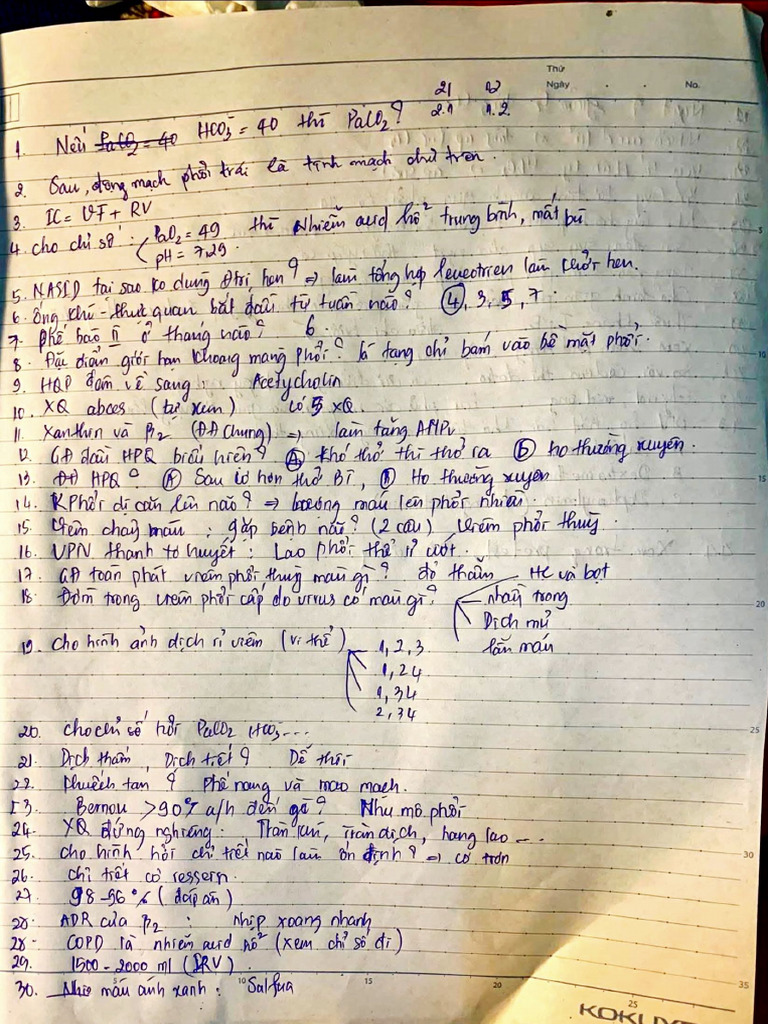 Thứ
Ngày . . No.
21 22
2.1 1.2.
1. Nếu PaCO2 = 40 HCO3- = 40 thì PaCO2?
2. Sau, động mạch phổi trái là tĩnh mạch chủ trên.
3. IC = VT + RV
4. cho chỉ số : PaO2 = 49 thì nhiễm acid hô2 trung bình, mất bù
pH = 7.29.
5. NASID tại sao ko dùng đtrị hen? => làm tổng hợp leucotrien làm khởi hen.
6. ống khí - thực quan bắt đầu từ tuần nào? 4, 3, 5, 7.
7. phế bào II ở tháng nào? 6.
8. Đặc điểm giới hạn khoang màng phổi? lá tạng chỉ bám vào bề mặt phổi.
9. HQP đám về sang: Acetycholin
10. XQ abces (tự xem) có 5 XQ.
11. Xanthin và β2 (ĐA chung) => làm tăng AMPv
12. GĐ đầu HPQ biểu hiện? A khó thở thì thở ra B ho thường xuyên.
13. HPQ? A Sau cơ hen thở BT, B Ho thường xuyên
14. K phổi di căn lên não? => lượng máu lên phổi nhiều.
15. Viêm chảy máu : gặp bệnh nào? (2 câu) Viêm phổi thuỳ.
16. VPN thanh tơ huyết : Lao phổi thể rỉ ướt.
17. GĐ toàn phát viêm phổi thuỳ màu gì? đỏ thẫm
18. Đờm trong viêm phổi cấp do virus có màu gì? HC và bọt
nhầy trong
Dịch mủ
lẫn máu
19. cho hình ảnh dịch rỉ viêm (vi thể) 1, 2, 3
1, 2 4
1, 3 4
2, 3 4
20. cho chỉ số hỏi PaCO2 HCO3- ...
21. Dịch thấm, Dịch tiết? Dễ thôi
22. khuếch tán? phế nang và mao mạch.
23. Bernou >90% a/h đến gì? Nhu mô phổi
24. XQ đứng nghiêng. Tràn khí, tràn dịch, hang lao ...
25. cho hình hỏi chi tiết nào làm ổn định? => cơ trơn
26. chi tiết có
27. 98-96% (đáp án)
28. ADR của β2 : nhịp xoang nhanh
28. COPD là nhiễm acid hô2 (xem chỉ số đi)
29. 1500 - 2000 ml (IRV)
30. máu ánh xanh : Salfua
KOKUYO